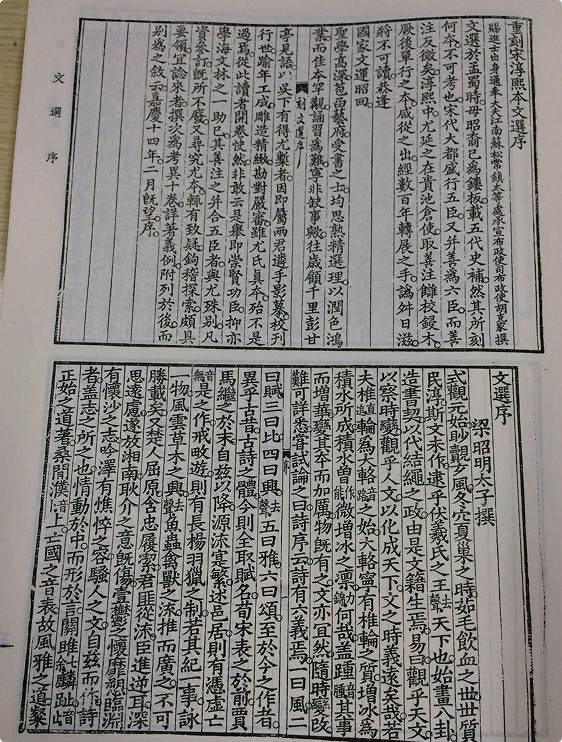 重刻宋淳熙本文選序
賜進士出身通奉大夫江南蘇松常鎮太等處承宣布政使司布政使胡克家撰
文選於孟蜀時毋昭裔已為鏤板載五代史補然其所刻
何本不可考也宋代大都盛行五臣又并善為六臣而善
注反微矣淳熙中尤延之在貴池倉使取善注讎校鋟木
厥後單行之本咸從之出經數百年轉展之手譌舛日滋
將不可讀恭逢
國家文運昭回
聖學高深苞函藝府受書之士均思熟精選理以潤色鴻
業而佳本罕覯誦習為難寧非缺事歟往歲顧千里彭甘
刻文選序
亭見語以吳下有得尤槧者因即屬兩君遴手影摹校刊
行世踰年工成雕造精緻勘對嚴審雖尤氏真本殆不是
過焉從此讀者開卷快然非敢云是舉即崇賢功臣抑亦
學海文林之一助已其善注之并合五臣者與尤殊別凡
資參訂既所不廢又尋究尤本輒有致疑鉤稽探索頗具
要領宜諭來者撰次為考異十卷詳著義例附列於後而
別為之敘云嘉慶十四年二月既望序
文選序
文選序
梁昭明太子撰
式觀元始眇覿玄風冬穴夏巢之時茹毛飲血之世世質
民淳斯文未作逮乎伏羲氏之王去聲天下也始畫八卦
造書契以代結繩之政由是文籍生焉易曰觀乎天文
以察時變觀乎人文以化成天下文之時義遠矣哉若
夫椎直追輪為大輅音路之始大輅寧有椎輪之質增冰為
積水所成積水曾微增冰之凜何哉蓋踵其事
而增華變其本而加厲物既有之文亦宜然隨時變改
難可詳悉嘗試論之曰詩序云詩有六義焉一曰風二
曰賦三曰比四曰興去聲五曰雅六曰頌至於今之作者
異乎古昔古詩之體今則全取賦名荀宋表之於前賈
馬繼之於末自茲以降源流寔繁述邑居則有憑虛亡
音無是之作戒畋遊則有長楊羽獵之制若其紀一事詠
一物風雲草木之興去聲魚蟲禽獸之流推而廣之不可
勝載矣又楚人屈原含忠履潔君匪從流臣進逆耳深
思遠慮遂放湘南耿介之意既傷壹鬱之懷靡愬臨淵
有懷沙之志吟澤有憔悴之容騷人之文自茲而作詩
者蓋志之所之也情動於中而形於言關雎七余麟趾音止
正始之道著桑間濮音卜上亡國之音表故風雅之道粲